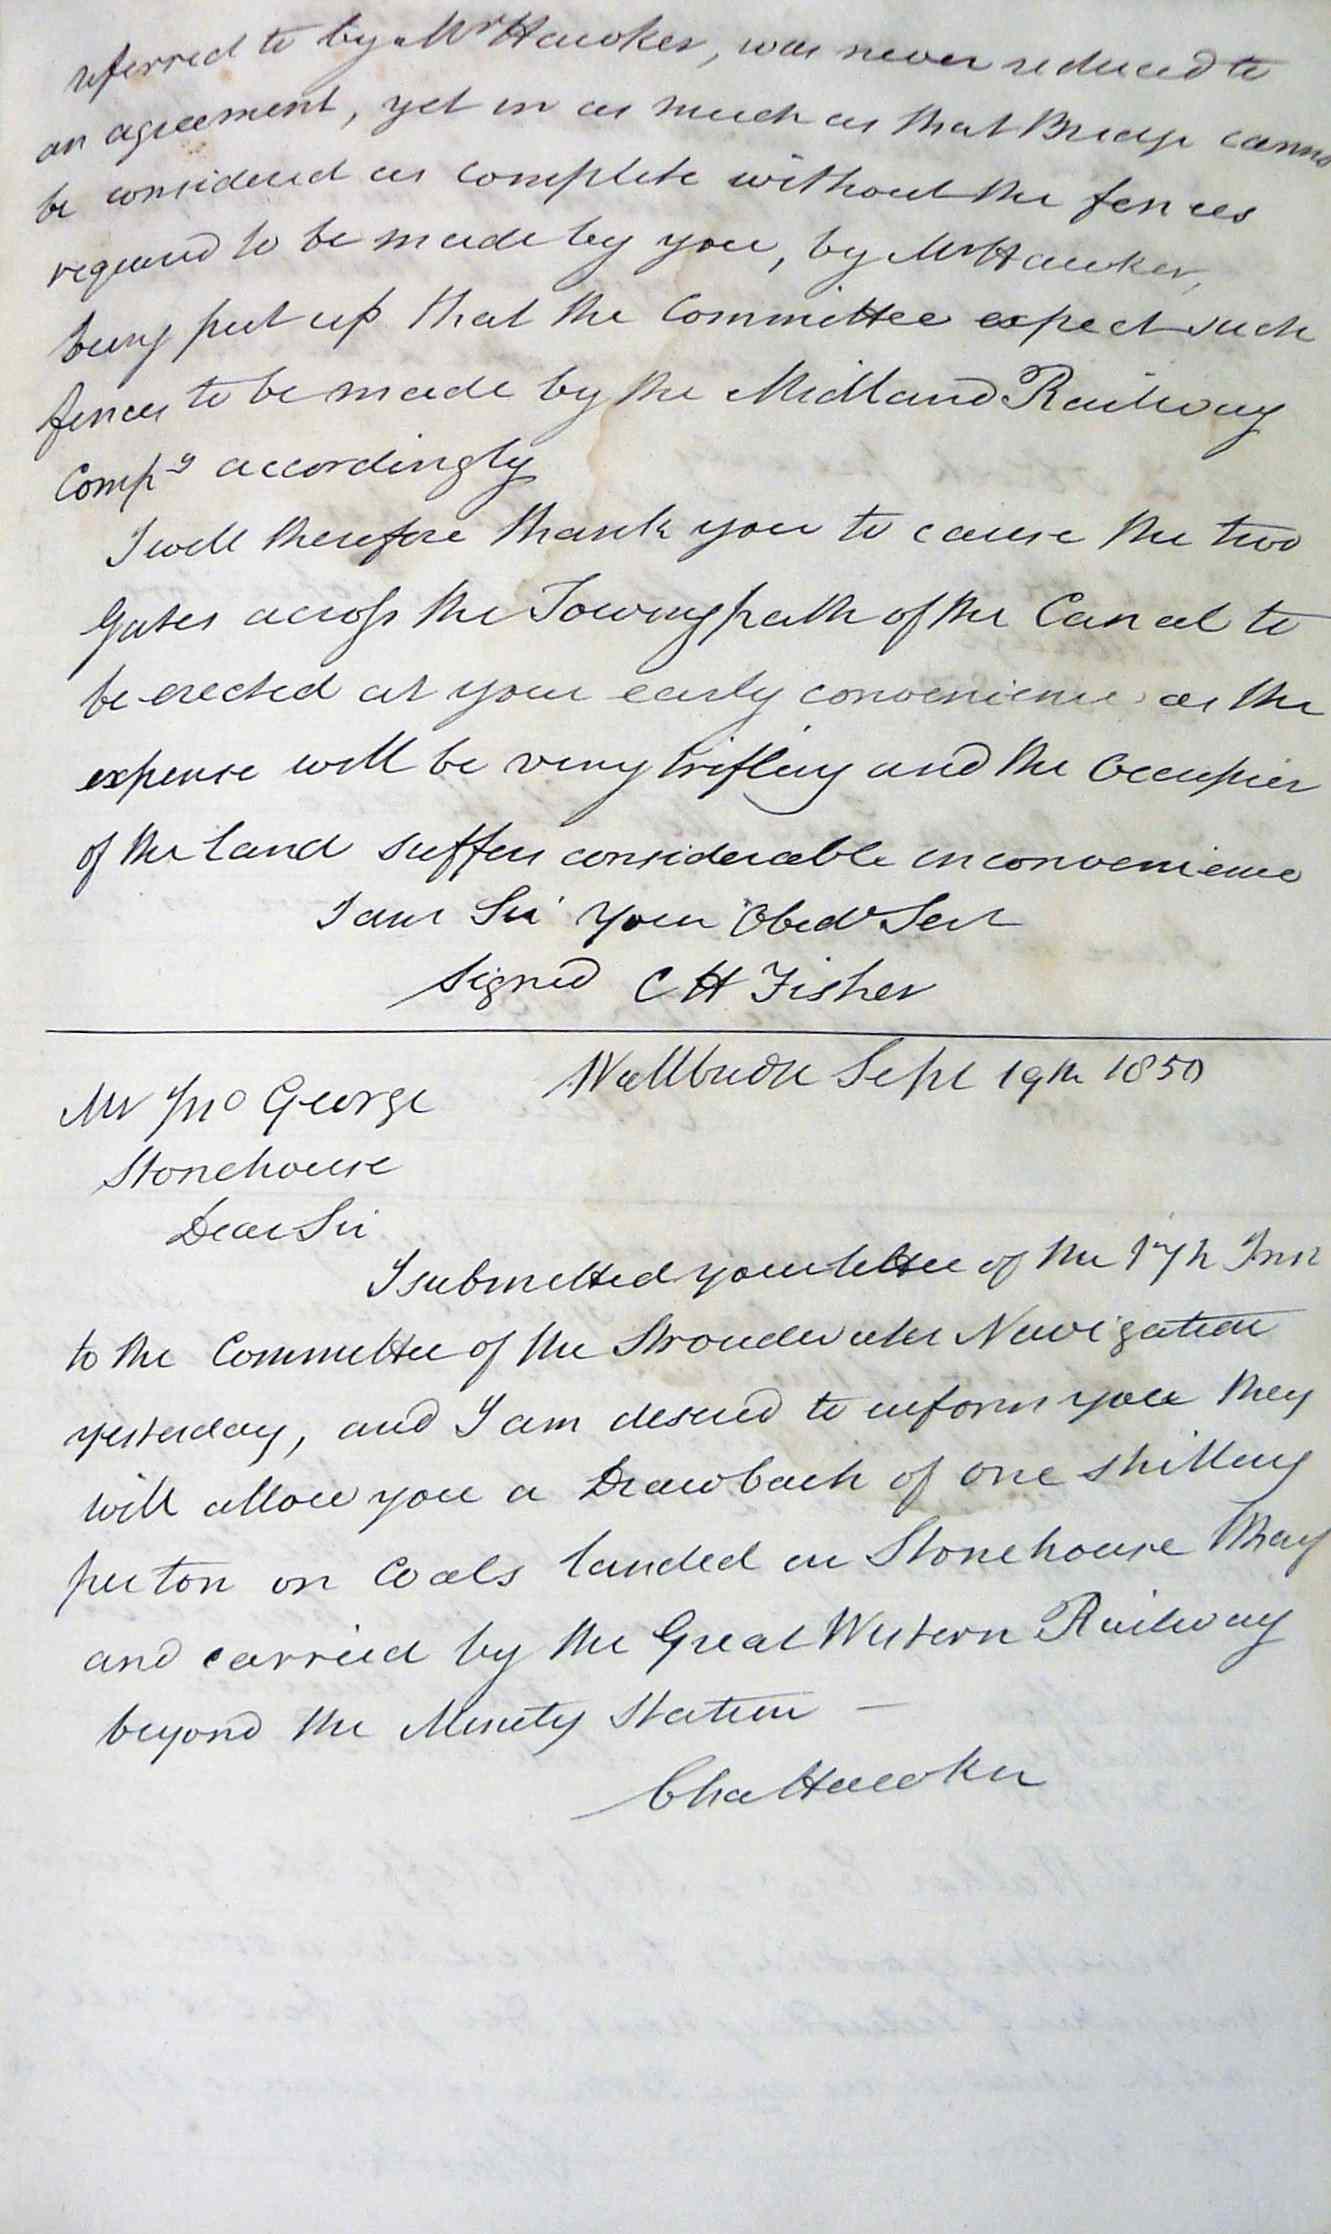 referred to by Mr Hawker, was never reduced to
an agreement, yet in as much as that Bridge cannot
be considered as complete without the fences
required to be made by you, by Mr Hawker,
being put up that the Committee expect such
fences to be made by the Midland Railway
Compy accordingly
I will therefore thank you to cause the two
Gates across the Towingpath of the Canal to
be erected at your early convenience as the
expense will be very trifling and the Occupier
of the land suffers considerable inconvenience
I am Sir Your Obedt Sert
Signed C H Fisher
Wallbridge Sept 19th 1850
Mr Jno George
Stonehouse
Dear Sir
I submitted your letter of the 17th Inst
to the Committee of the Stroudwater Navigation
yesterday, and I am desired to inform you they
will allow you a Drawback of one shilling
per ton on Coals landed on Stonehouse Wharf
and carried by the Great Western Railway
beyond the Minety Station –
Chas Hawker